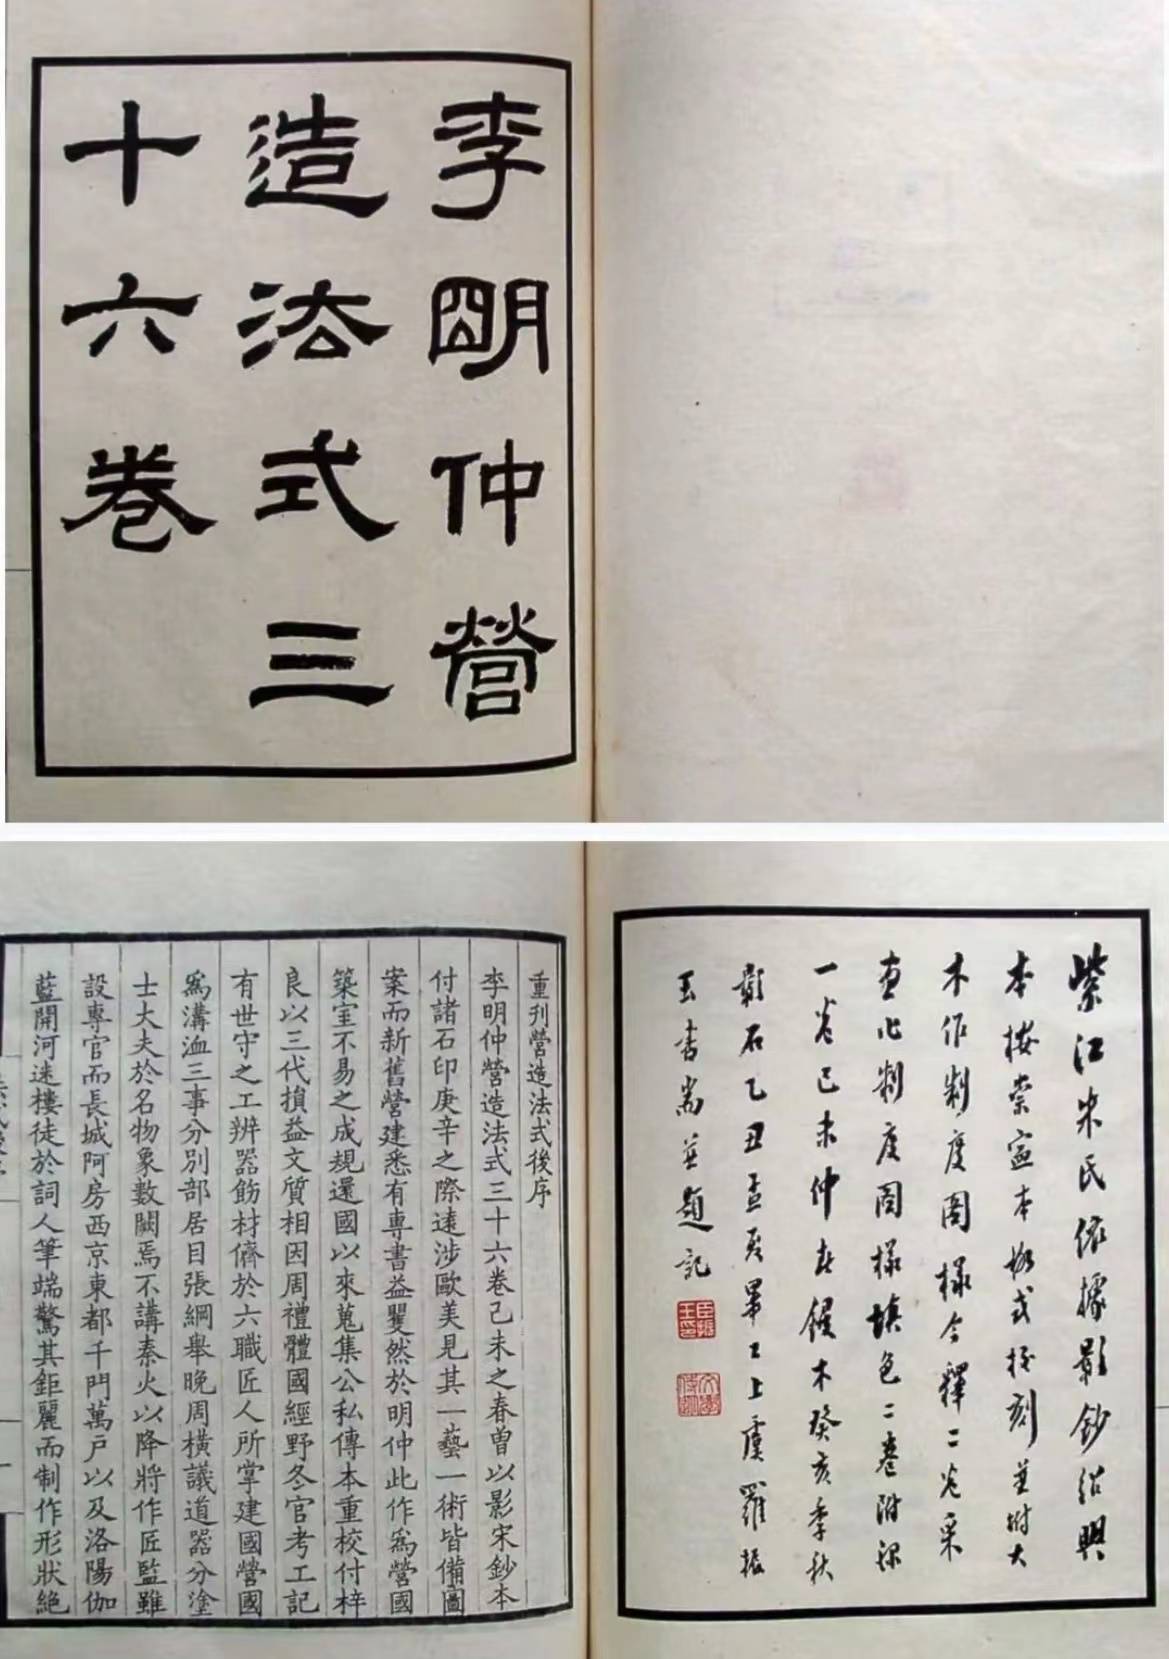 李明仲營
造法式三
十六卷
紫江朱氏依據影鈔紹興
本按崇寧本格式校刻並附大
木作制度圖樣今釋二卷采
畫作制度圖樣填色二卷附錄
一卷己未仲春鋟木癸亥季秋
勘石乙丑孟夏畢工上虞羅振
玉書耑并題記
重刊營造法式後序
李明仲營造法式三十六卷己未之春曾以影宋鈔本
付諸石印庚辛之際遠涉歐美見其一藝一術皆備圖
案而新舊營建悉有專書益矍然於明仲此作爲營國
築室不易之成規還國以來蒐集公私傳本重校付梓
良以三代損益文質相因周禮體國經野冬官考工記
有世守之工辨器飭材儕於六職匠人所掌建國營國
爲溝洫三事分別部居目張綱舉晚周橫議道器分塗
士大夫於名物象數闕焉不講秦火以降將作匠監雖
設專官而長城阿房西京東都千門萬戶以及洛陽伽
藍開河迷樓徒於詞人筆端驚其鉅麗而制作形狀絕